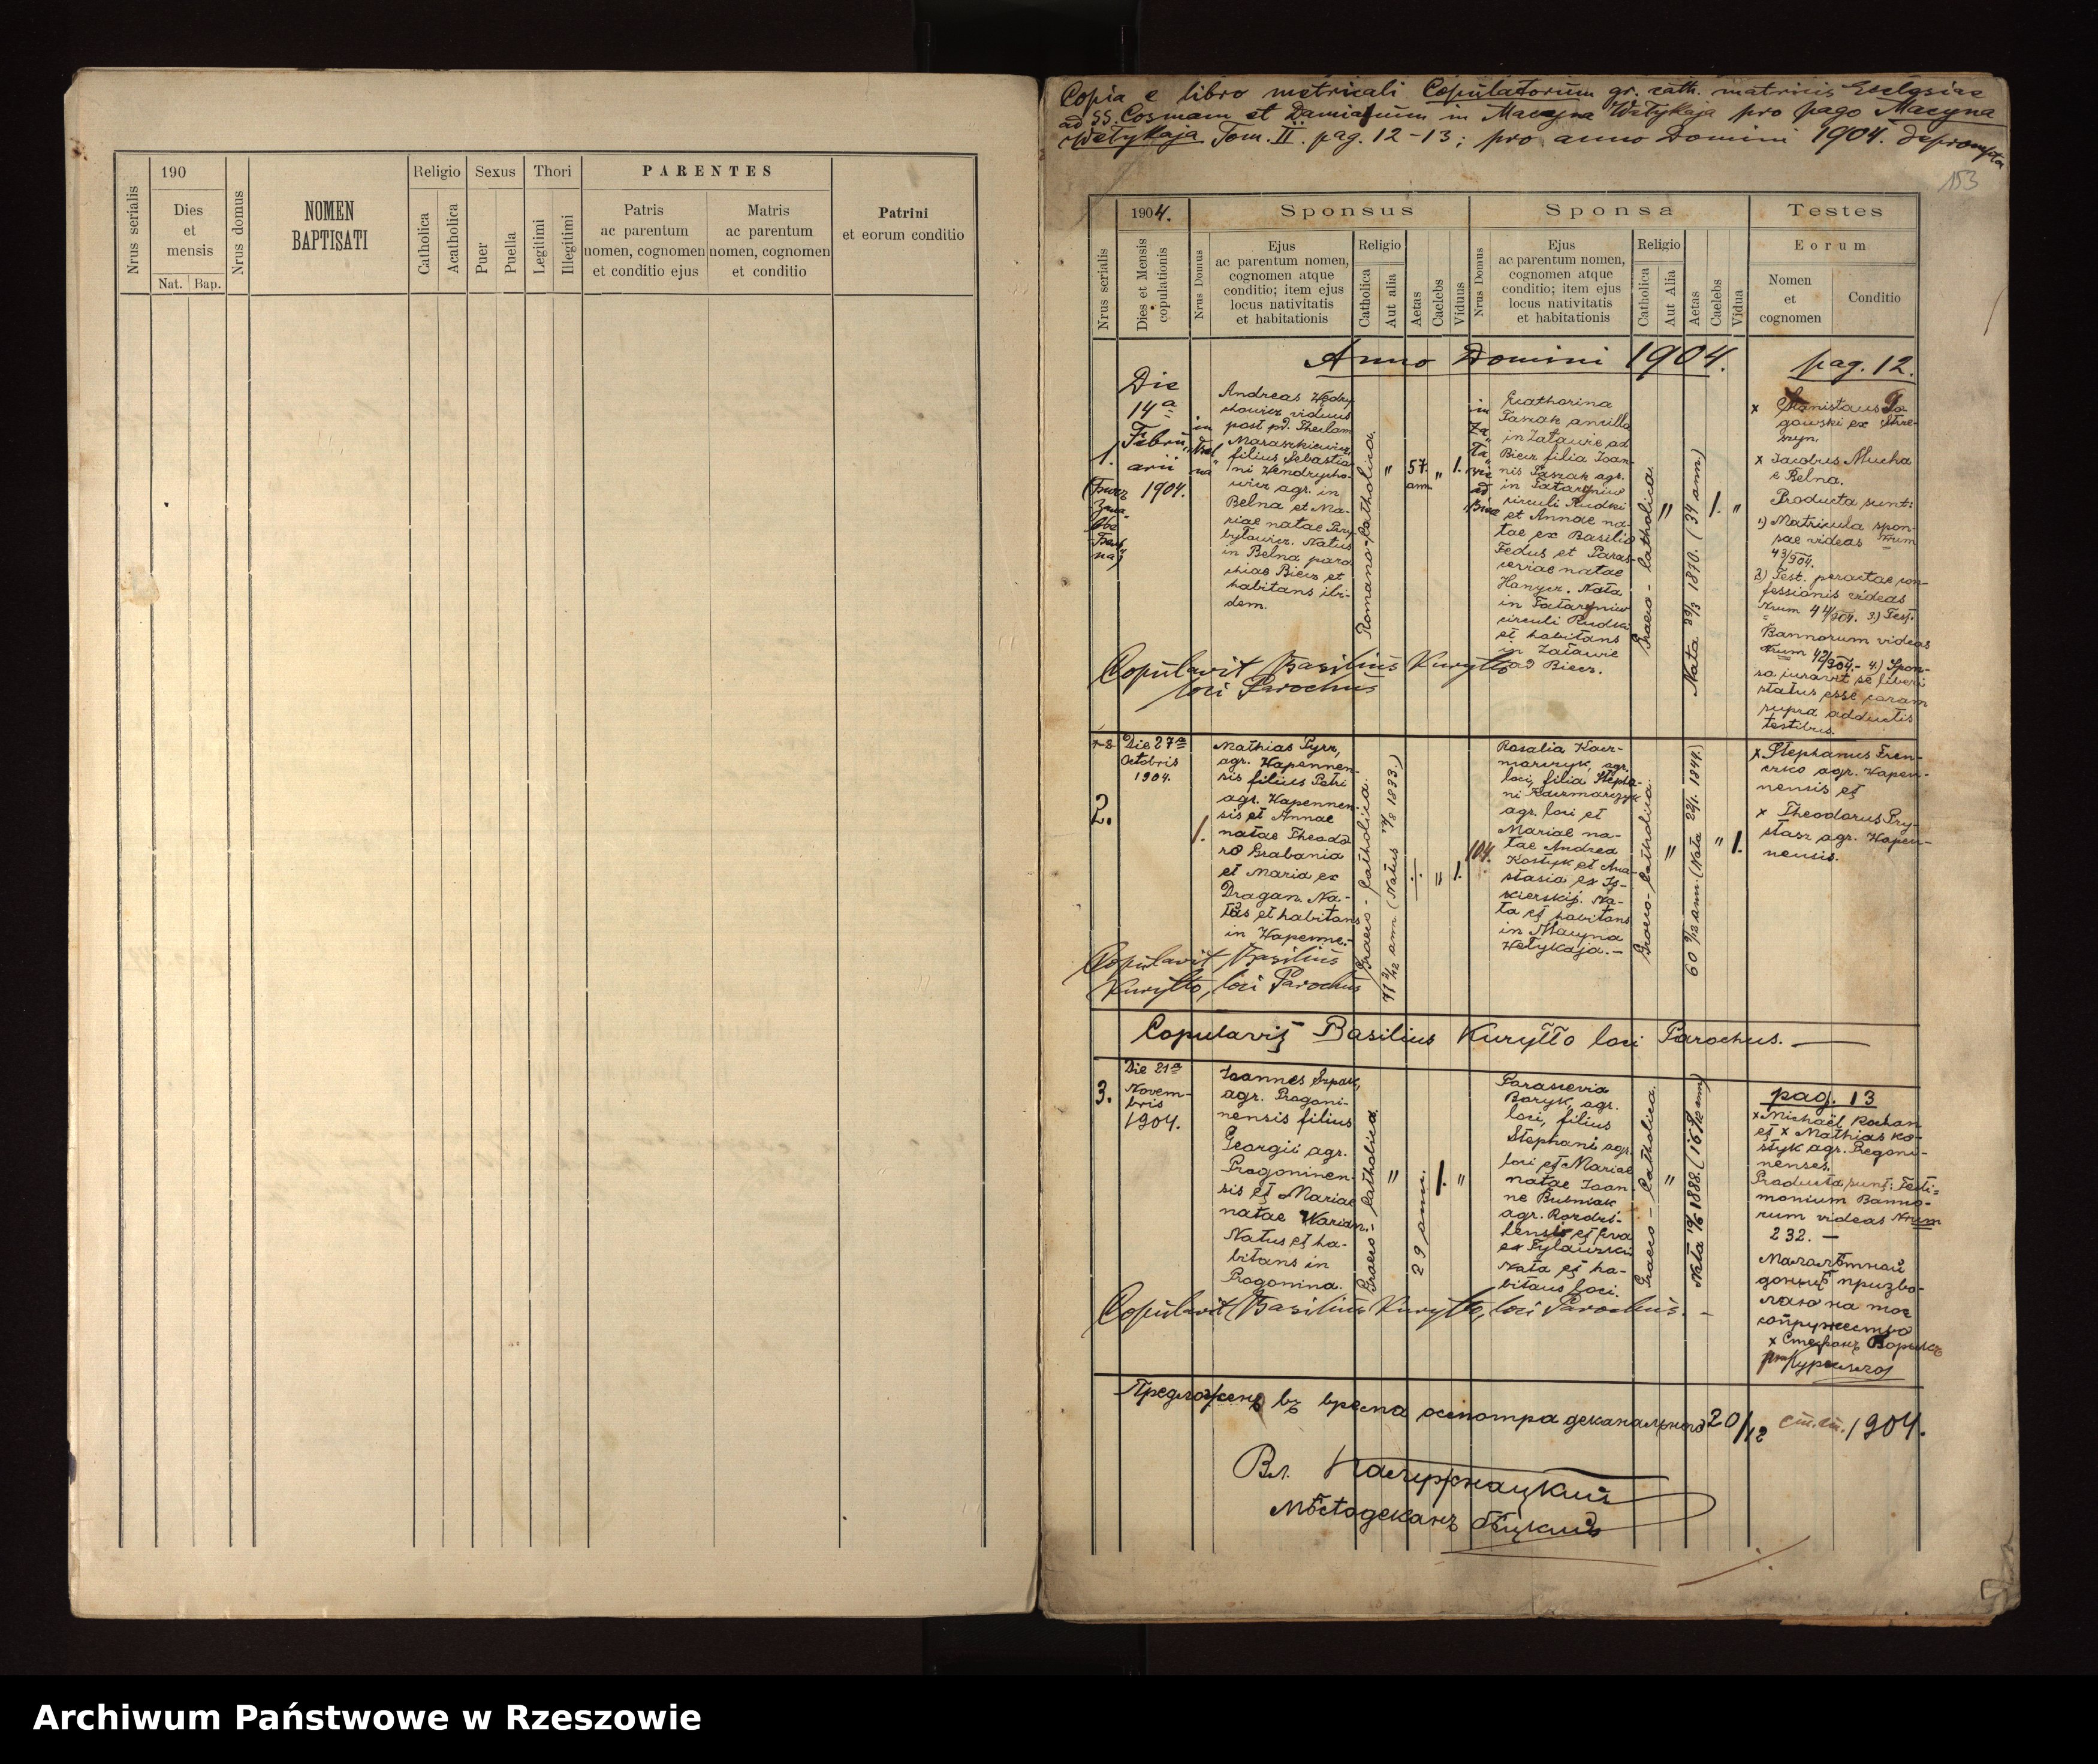 Nrus serialis
190
Dies
et
mensis
Nat. Bap.
Nrus domus
NOMEN
BAPTISATI
Religio
Catholica
Acatholica
Sexus
Puer
Puella
Thori
Legitimi
Illegitimi
PARENTES
Patris
ac parentum
nomen, cognomen
et conditio ejus
Matris
ac parentum
nomen, cognomen
et conditio
Patrini
et eorum conditio
Copia e libro metricali Copulatorum gr. cath. matricis Ecclesiae
ad SS. Cosmam et Damianum in Macyna Wełykaja pro pago Macyna
Wełykaja Tom. II. pag. 12-13; pro anno Domini 1904. deprompta
153
Nrus serialis
1904.
Dies et Mensis
copulationis
Sponsus
Nrus Domus
Ejus
ac parentum nomen,
cognomen atque
conditio; item ejus
locus nativitatis
et habitationis
Religio
Catholica
Aut alia
Aetas
Caelebs
Viduus
Sponsa
Nrus Domus
Ejus
ac parentum nomen,
cognomen atque
conditio; item ejus
locus nativitatis
et habitationis
Religio
Catholica
Aut Alia
Aetas
Caelebs
Vidua
Testes
Eorum
Nomen
et
cognomen
Conditio
Anno Domini 1904.
pag. 12.
1.
Die
14a
Febru
arii
1904.
in
Bel
na
Andreas
viduus
post
filius Sebastia
ni Wendrycho
wicz agr. in
Belna et Ma-
riae natae Przy
byłowicz. Natus
in Belna paro
chiae Biecz et
habitans ibi-
dem.
Romano-catholica.
"
57
ann.
"
1.
Catharina
Taszak ancilla
in Załawie ad
Biecz filia Joan-
nis Taszak agr.
in
circuli Rudki
et Annae na-
tae ex Basilio
Fedus et Paras-
ceviae natae
Nata
in
circuli Rudki
et habitans
in Załawie
ad Biecz.
Graeco-catholica.
"
Nata 1870. (34 ann.)
1.
"
x Stanislaus
gowski ex Stre-
szyn.
x Jacobus Mucha
e Belna.
Producta sunt:
1) Matricula spon-
sae videas Nrum
43/904.
2) Test. peractae con-
fessionis videas
Nrum 44/904. 3) Test.
Bannorum videas
Nrum 42/904.- 4) Spon-
sa juravit se liberi
status esse coram
supra adductis
testibus.
Copulavit Basilius Kuryłło
loci Parochus
2.
Die 27a
Octobris
1904.
1.
Mathias Pyrz,
agr. Wapennen-
sis filius Petri
agr. Wapennen-
sis et Annae
natae Theodo
ro Grabania
et Maria ex
Dragan. Na-
tus et habitans
in Wapenne.-
Graeco-catholica.
71 2/12 ann (Natus 1833.)
"
1.
104.
Rosalia Kacz-
marczyk, agr.
loci, filia Stepha-
ni Kaczmarczyk
agr. loci et
Mariae na-
tae Andrea
Kostyk et Ana-
stasia ex
Na-
ta et habitans
in Macyna
Wełykaja.-
Graeco-catholica.
"
60 9/12 ann. (Nata 1844.)
"
1.
x Stephanus
agr. Wapen-
nensis et
x Theodorus Pry-
stasz agr. Wapen-
nensis.
Copulavit Basilius
Kuryłło, loci Parochus
Copulavit Basilius Kuryłło loci Parochus.
3.
Die 21a
Novem-
bris
1904.
Joannes Szpak,
agr. Pragoni-
nensis filius
Georgii agr.
Pragoninen-
sis et Mariae
natae
Natus et ha-
bitans in
Pragonina.
Graeco-catholica.
"
29 ann.
1.
"
Parascevia
Boryk, agr.
loci, filius
Stephani agr.
loci et Mariae
natae Joan
ne Bubniak
agr.
et Eva
ex
Nata et ha-
bitans loci.
Graeco-catholica.
"
Nata 1888. (16 ann)
pag. 13
x Michaël Kochan
et x Mathias Ko-
styk agr. Pregoni-
nenses.
Producta sunt: Testi-
monium Banno-
rum videas Nrum
232. -
Малолѣтной
донцѣ призво-
ляю на тое
сопружество
x Стефанъ Борыкъ
Copulavit Basilius Kuryłło, loci Parochus. -
Предложенъ въ время осмотра деканального 20/12 ст.ст. 1904.
Вл.
Мѣстодеканъ бѣцкий
Archiwum Państwowe w Rzeszowie